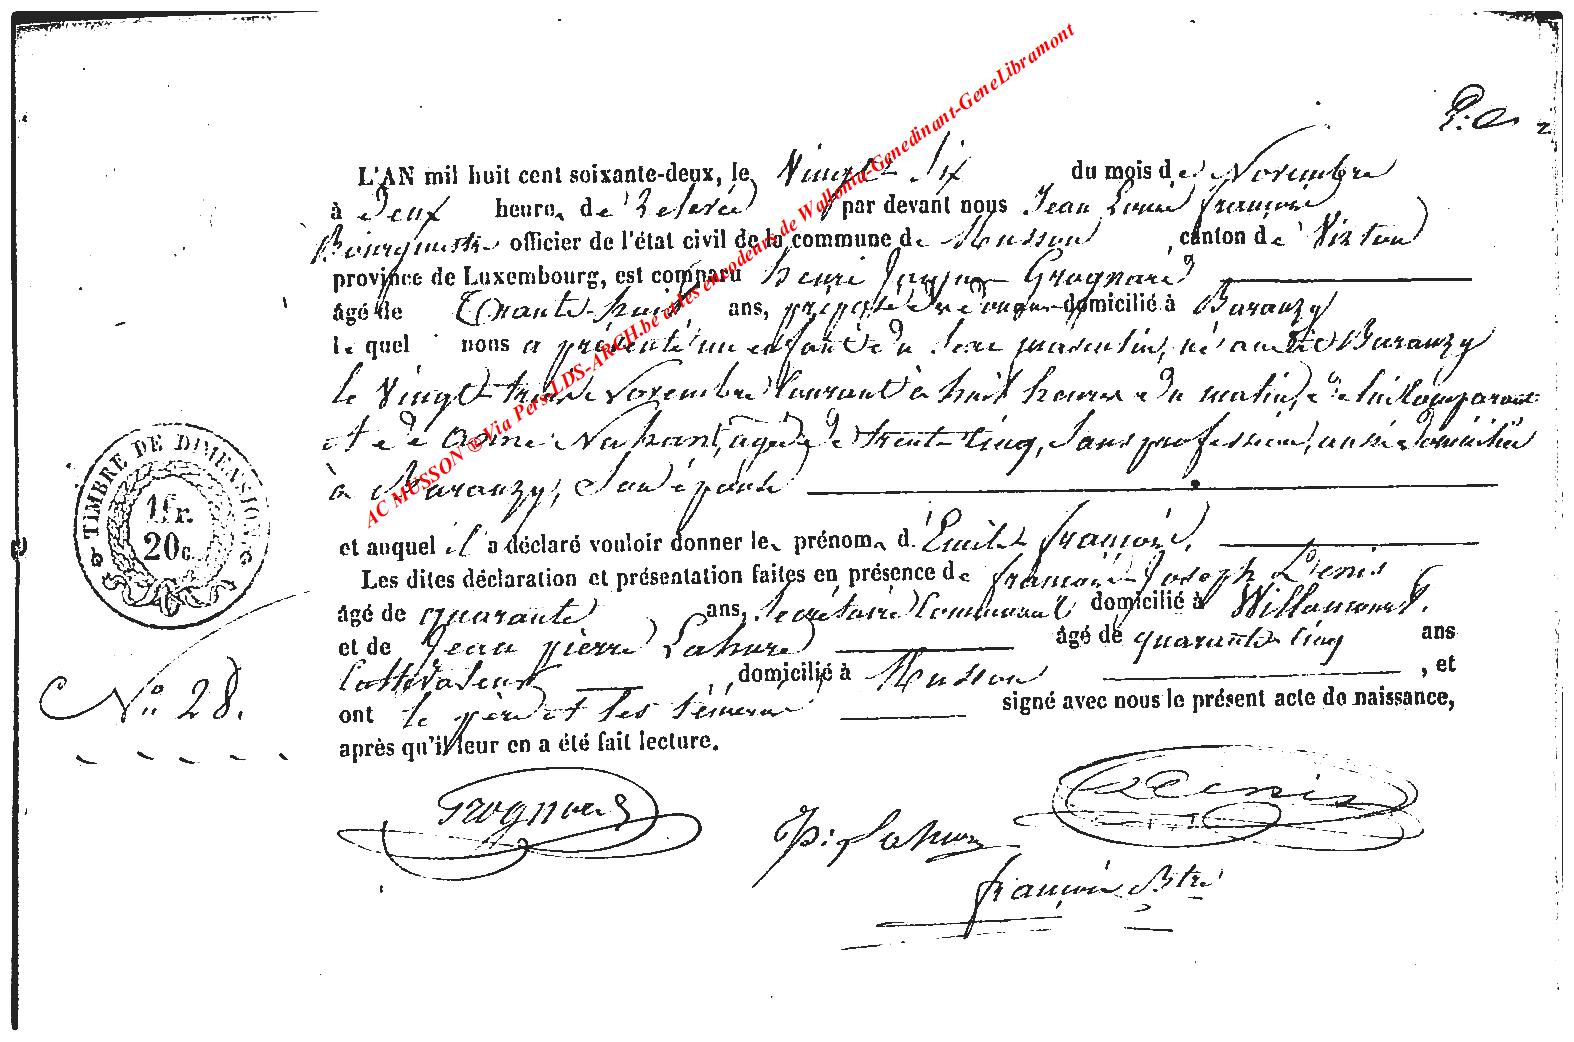 L'AN mil huit cent soixante-deux, le Vingt Six du mois de Novembre
à deux heures de relevée par devant nous Jean Louis François
Bourgmestre officier de l'état civil de la commune de Musson, canton de Virton
province de Luxembourg, est comparu henri Jacques Grognard
âgé de Trante-huit ans, préposé des douanes domicilié à Baranzy
le quel nous a présenté un enfant du sexe masculin, né au dit Baranzy
le Vingt trois Novembre Courant à huit heures du matin, de lui Comparant
et de Nahant, agée de trente Cinq, Sans profession, aussi domiciliée
à Baranzy, Son épouse
et auquel il a déclaré vouloir donner les prénoms d'Emile françois.
Les dites déclaration et présentation faites en présence de françois Joseph Denis
âgé de quarante ans, Secrétaire Communal domicilié à Willancourt.
et de Jean pierre Lahure âgé de quarante Cinq ans
Cultivateur, domicilié à Musson, et
ont le père et les témoins signé avec nous le présent acte de naissance,
après qu'il leur en a été fait lecture.
TIMBRE DE DIMENSION
1 fr.
20 c.
No 28.
Grognard
Denis
JP: Lahure
françois Btre
AC MUSSON ® Via Pers-LDS-ARCH.be et les encodeurs de Wallonia-Genedinant-GeneLibramont